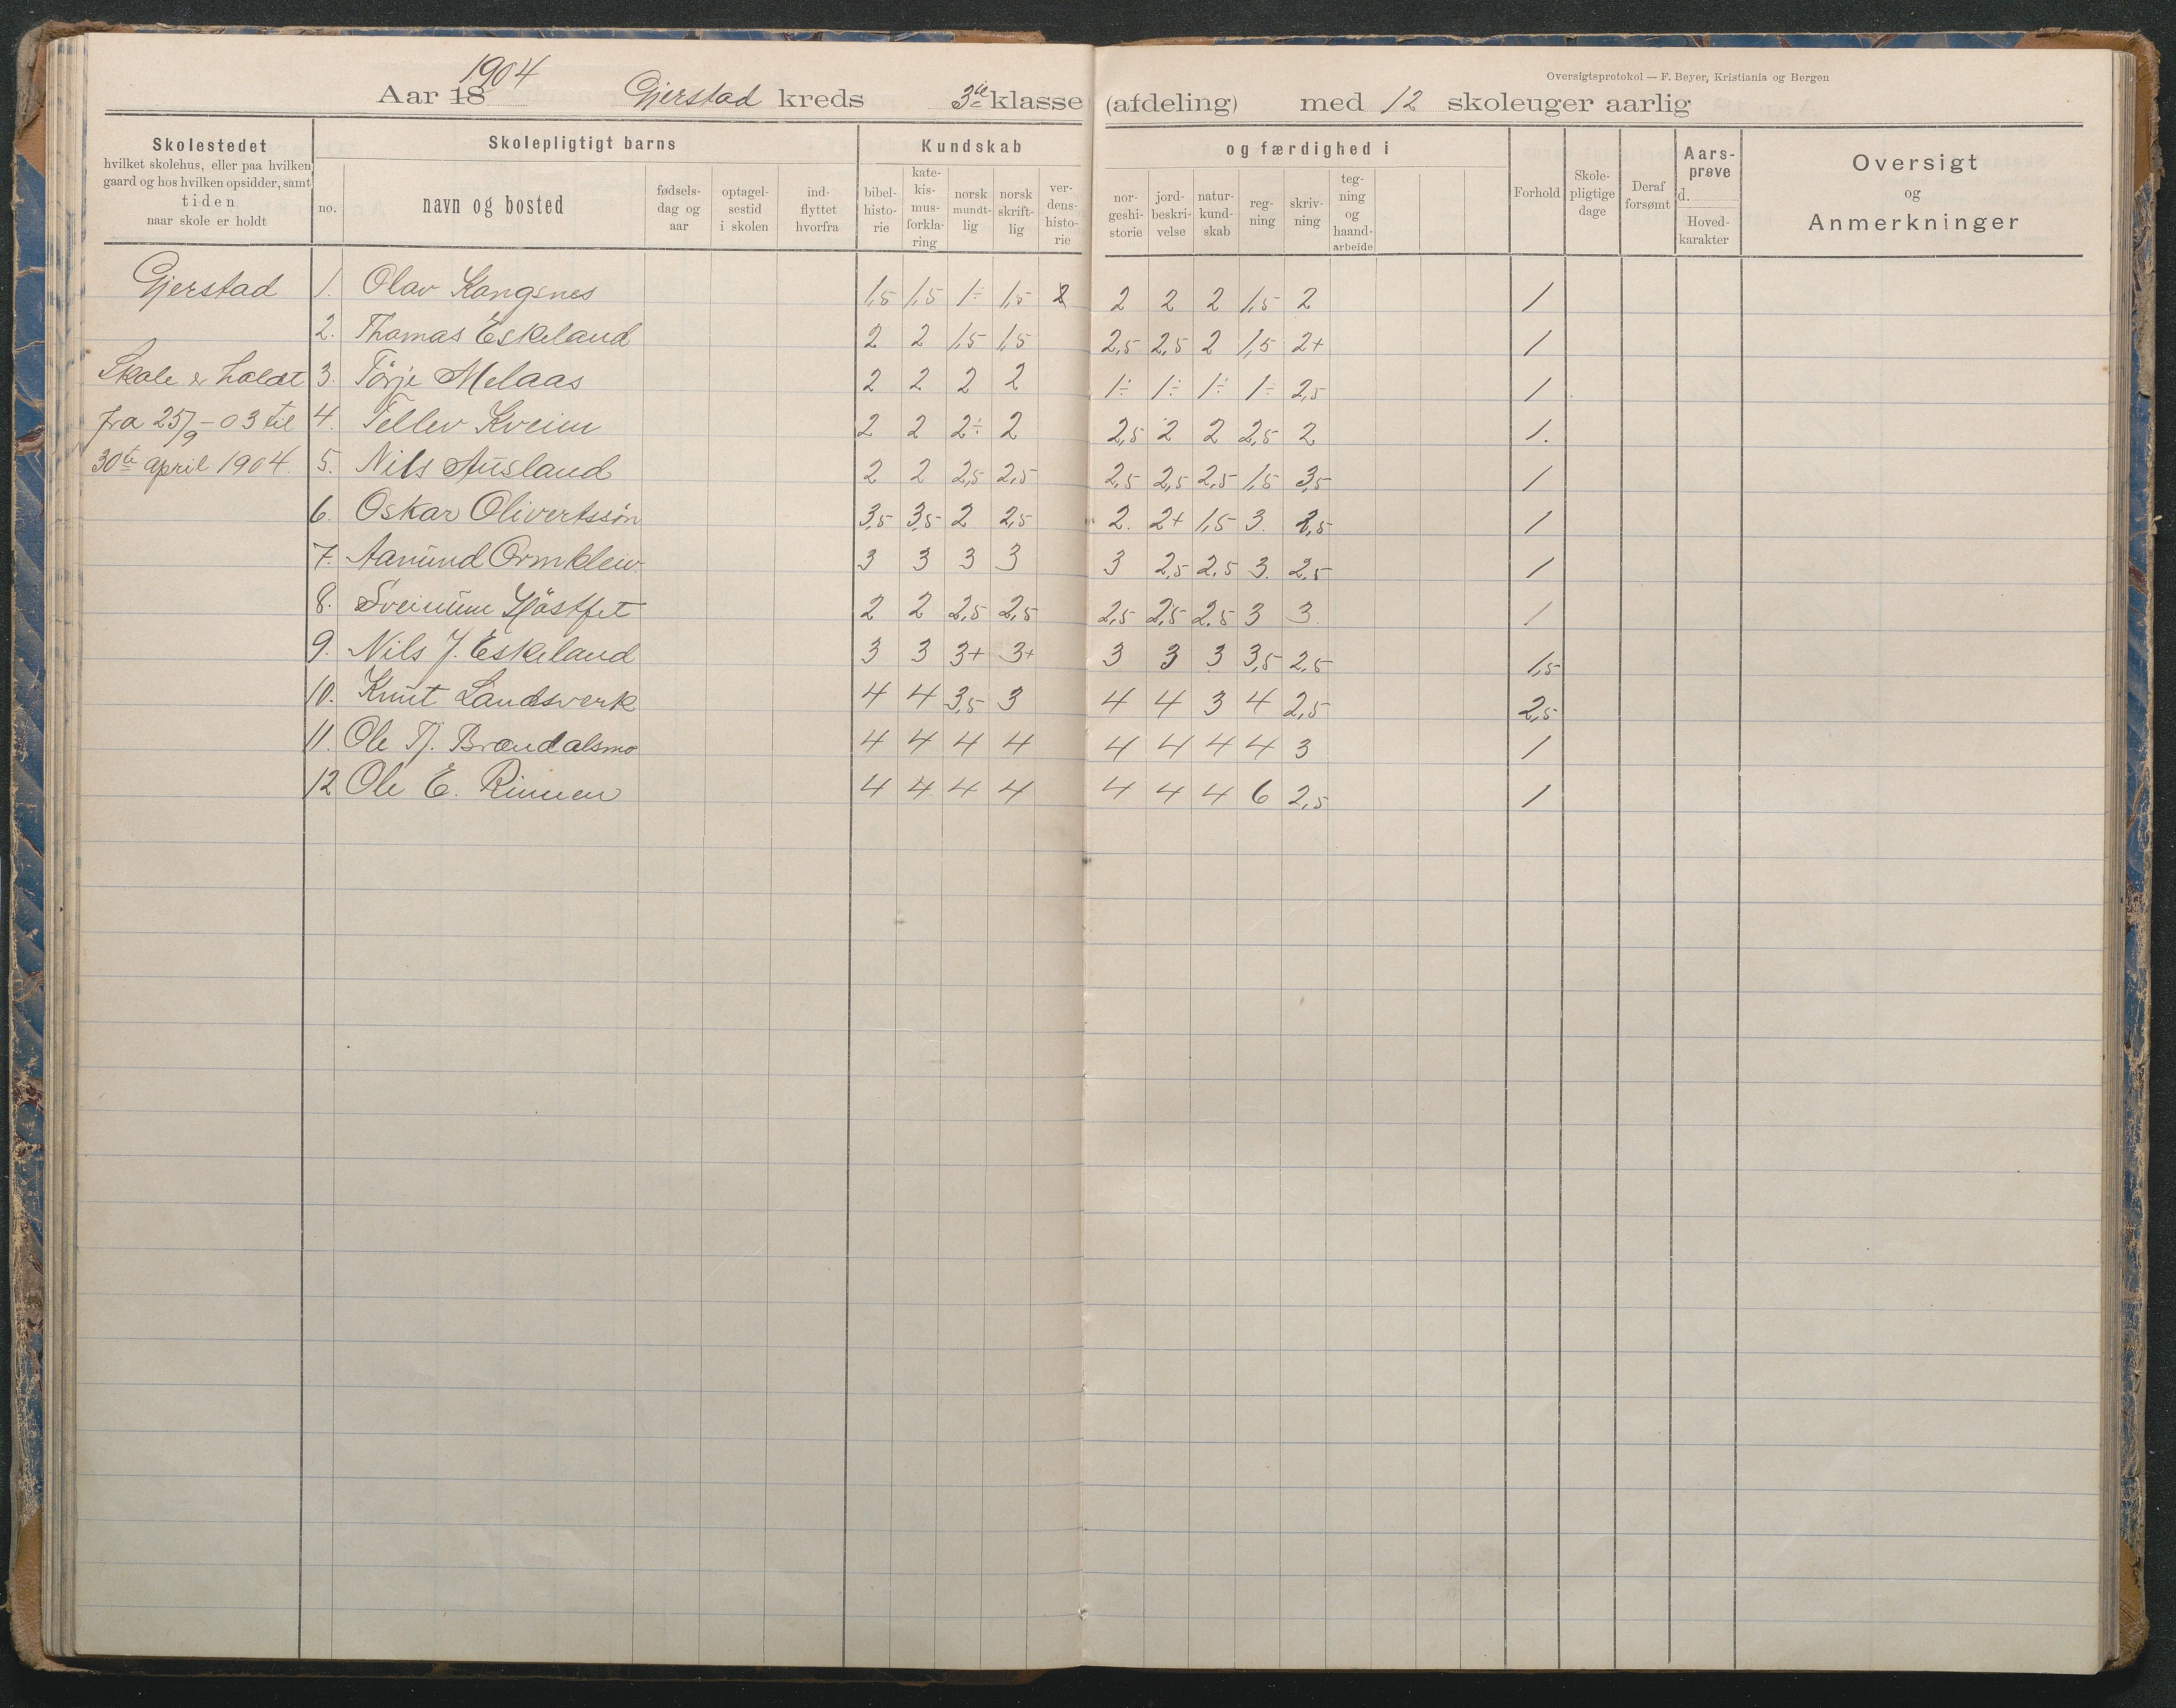 Oversigtsprotokol — F. Beyer, Kristiania og Bergen
1904
Aar 18 Gjerstad kreds 3die klasse (afdeling) med 12 skoleuger aarlig
Skolestedet
hvilket skolehus, eller paa hvilken
gaard og hos hvilken opsidder, samt
tiden
naar skole er holdt
Skolepligtigt barns
no.
navn og bosted
fødsels-
dag og
aar
optagel-
sestid
i skolen
ind-
flyttet
hvorfra
Kundskab
bibel-
histo-
rie
kate-
kis-
mus-
forkla-
ring
norsk
mundt-
lig
norsk
skrift-
lig
ver-
dens-
histo-
rie
og færdighed i
nor-
geshi-
storie
jord-
beskri-
velse
natur-
kund-
skab
reg-
ning
skriv-
ning
teg-
ning
og
haand-
arbeide
Forhold
Skole-
pligtige
dage
Deraf
forsømt
Aars-
prøve
d.
Hoved-
karakter
Oversigt
og
Anmerkninger
Gjerstad 1. Olav Kangsnes 1,5 1,5 1÷ 1,5 2 2 2 2 1,5 2 1
2. Thomas Eskeland 2 2 1,5 1,5 2,5 2,5 2 1,5 2+ 1
Skole er holdt 3. Törje Melaas 2 2 2 2 1÷ 1÷ 1÷ 1÷ 2,5 1
fra 25/9 - 03 til 4. Tellev Kveim 2 2 2÷ 2 2,5 2 2 2,5 2 1.
30te april 1904. 5. Nils Ausland 2 2 2,5 2,5 2,5 2,5 2,5 1,5 3,5 1
6. Oskar Olivertssön 3,5 3,5 2 2,5 2. 2+ 1,5 3. 2,5 1
7. Aanund Ormkleiv 3 3 3 3 3 2,5 2,5 3. 2,5 1
8. Sveinum Höstfet 2 2 2,5 2,5 2,5 2,5 2,5 3 3. 1
9. Nils J. Eskeland 3 3 3+ 3+ 3 3 3 3,5 2,5 1,5
10. Knut Landsverk 4 4 3,5 3 4 4 3 4 2,5 2,5
11. Ole Tj. Brændalsmo 4 4 4 4 4 4 4 4 3 1
12 Ole E. Rinnen 4 4. 4 4 4 4 4 6 2,5 1